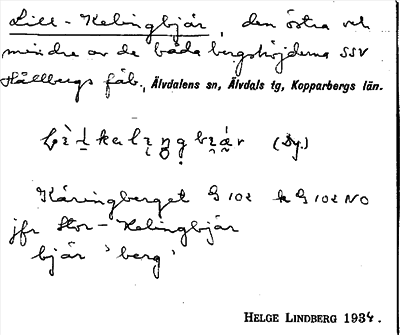 Lill-Kelingbjär, den östra och
mindre av de båda bergshöjderna SSV
Hållbergs fäb., Älvdalens sn, Älvdals tg, Kopparbergs län.
(Dy.)
Käringberget G 102 k G 102 NO
jfr Stor-Kelingbjär
bjär 'berg'
HELGE LINDBERG 1934.